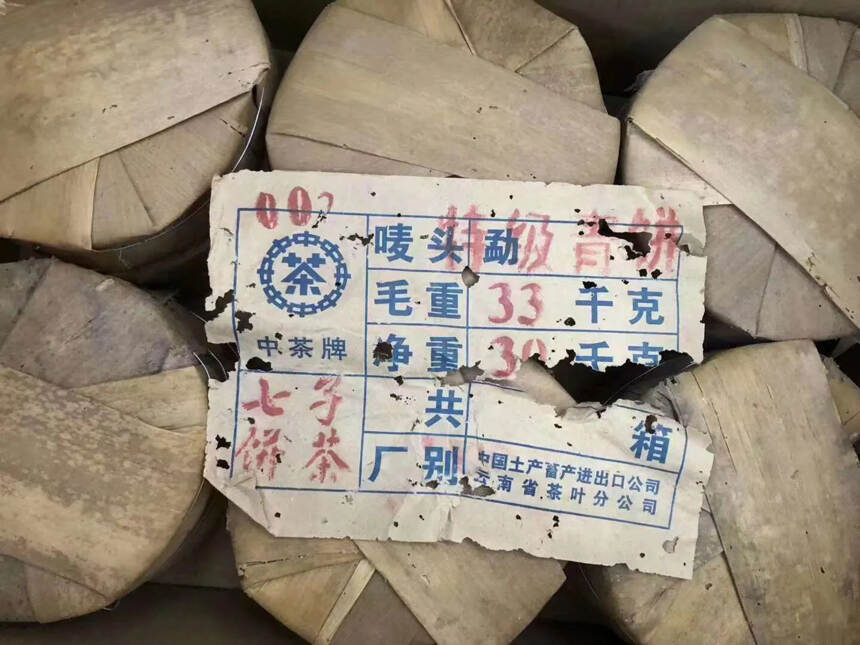 002
唛头 勐 特级青饼
茶
毛重 33 千克
中茶牌 净重 30 千克
七子 共 箱
饼茶 厂别 中国土产畜产进出口公司
云南省茶叶分公司